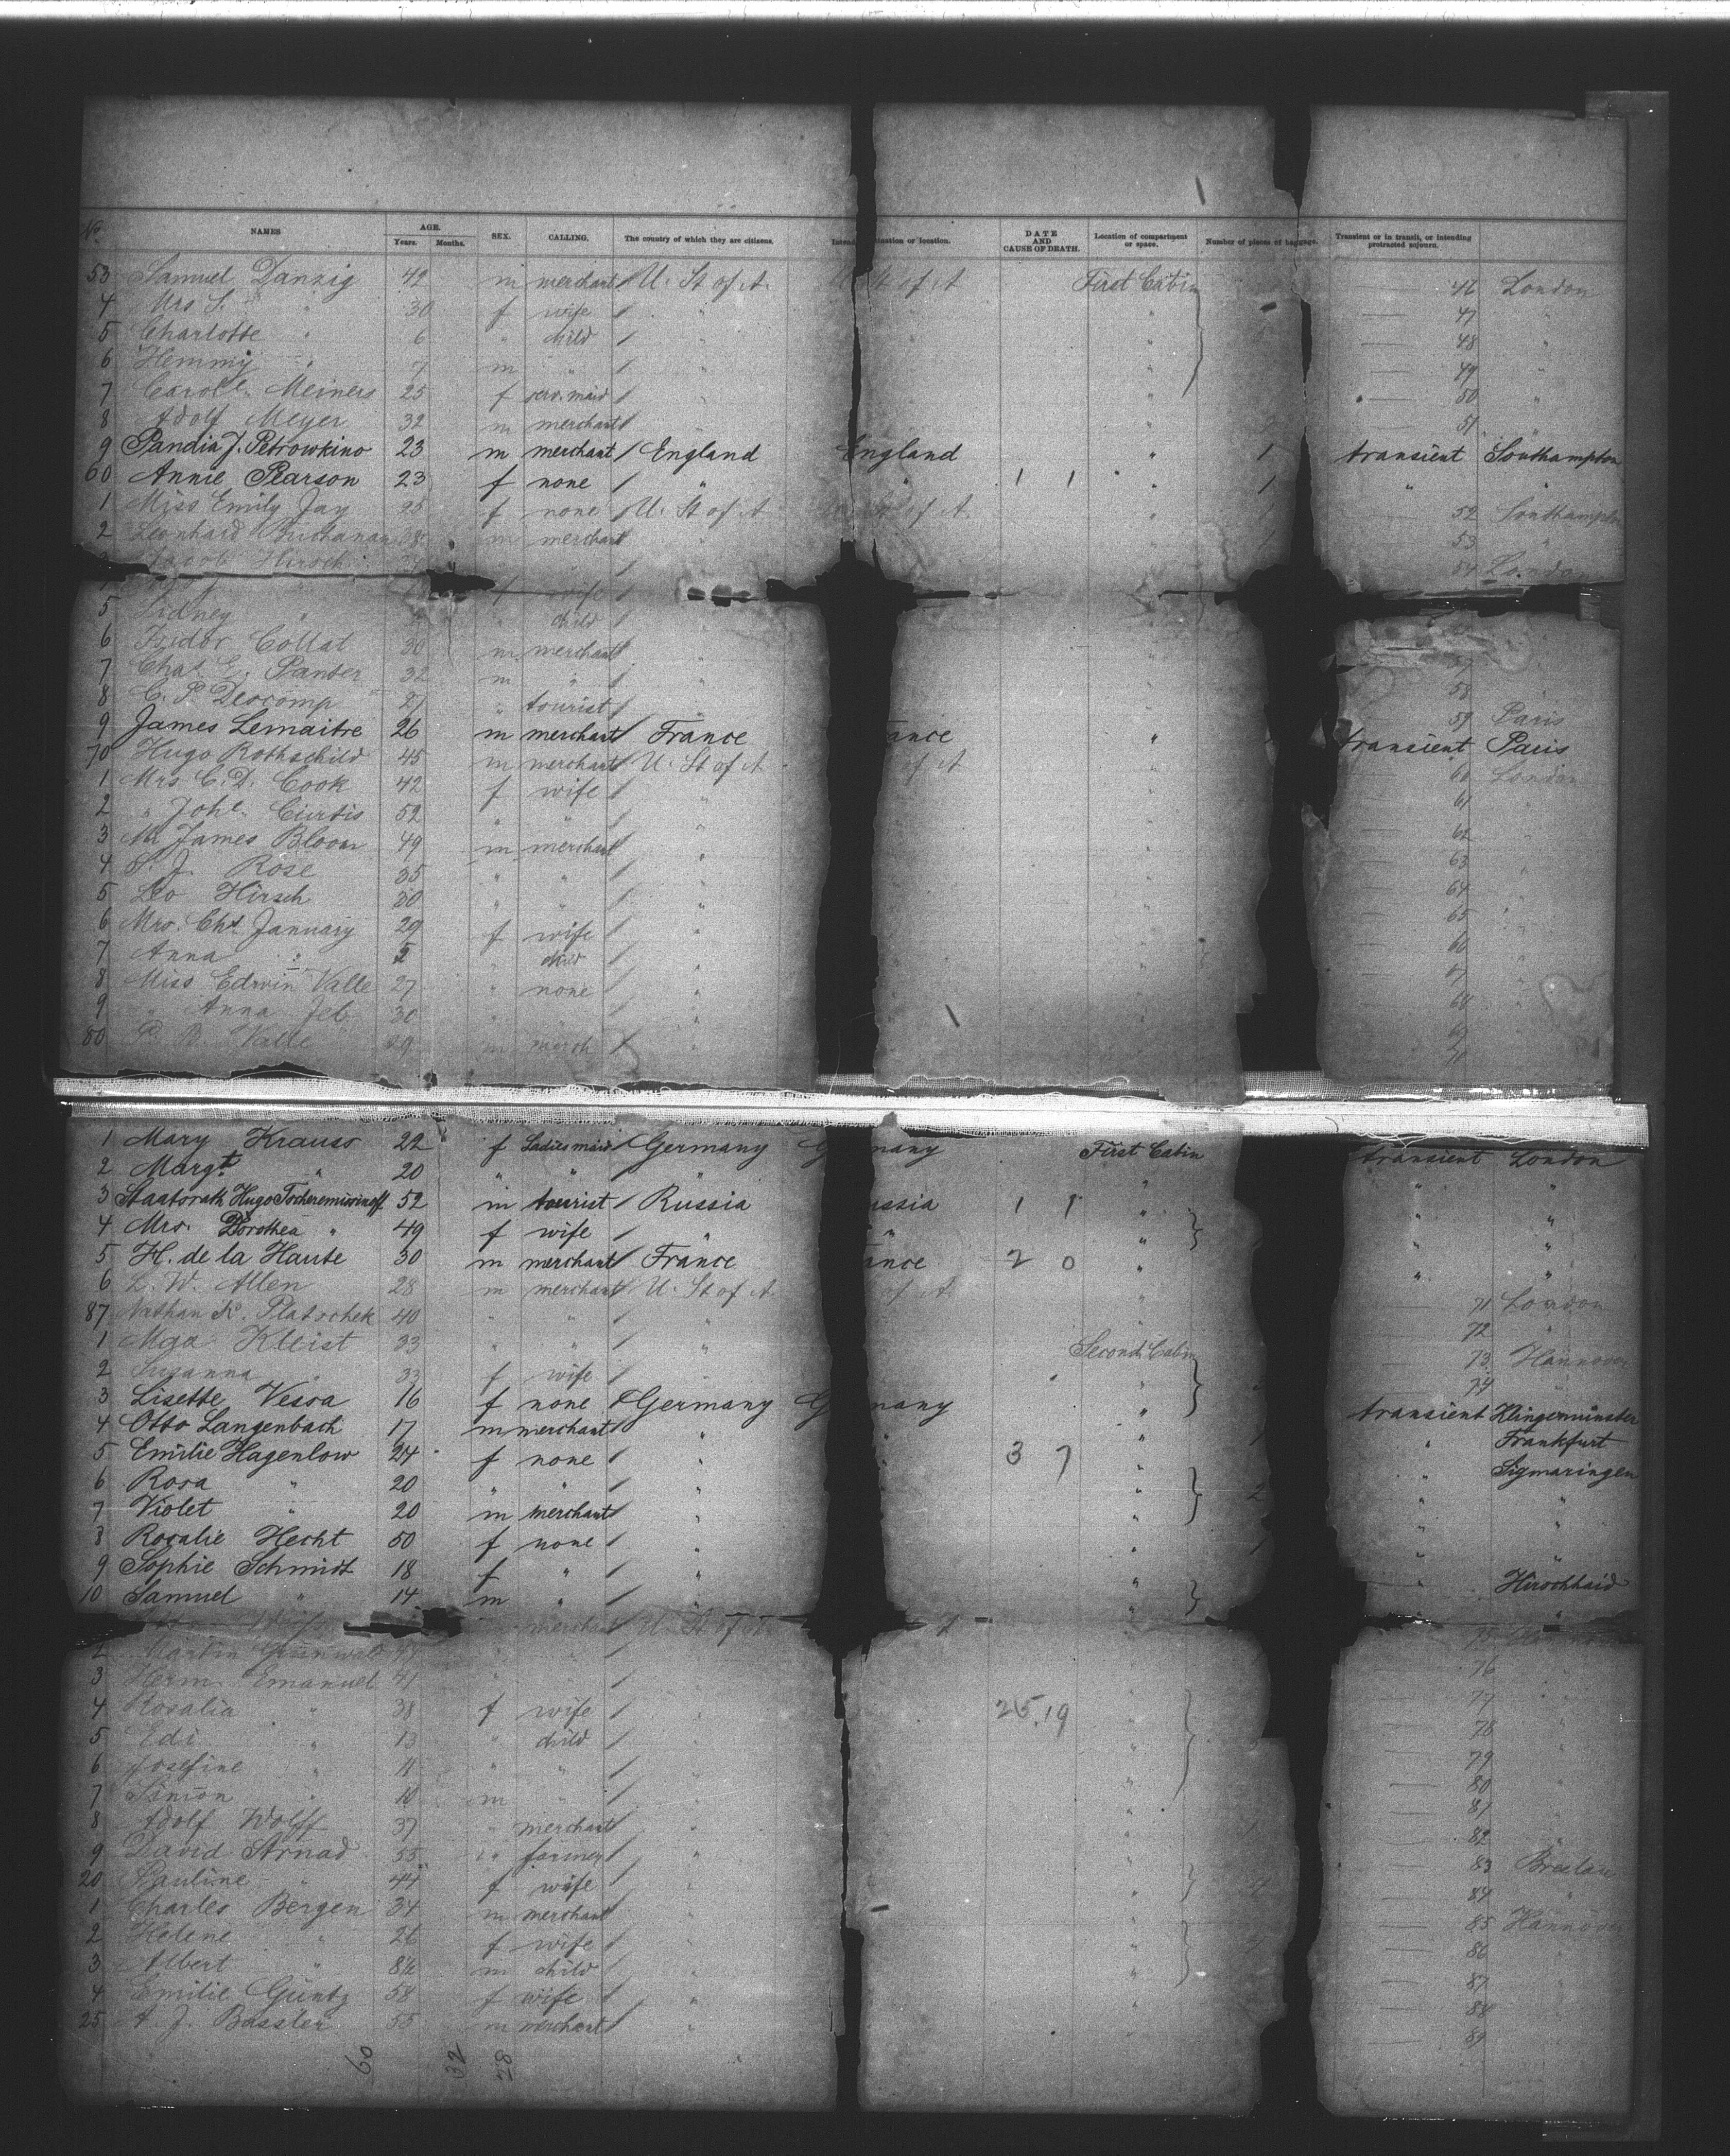 No. NAMES AGE. Years. Months. SEX. CALLING. The country of which they are citizens. Intend tination or location. DATE AND CAUSE OF DEATH. Location of compartment or space. Number of pieces of baggage. Transient or in transit, or intending protracted sojourn.
53 Samuel Danzig 42 m merchant / U. St of A. St of A First Cabin 46 London
4 Mrs S. " 30 f wife / " " 47 "
5 Charlotte " 6 " child / " " 48 "
6 Hemmy " 7 m " / " 49 "
7 Carole. Meiners 25 f serv. maid / " " 50 "
8 Adolf Meyer 32 m merchant / " 51 "
9 Pandia J. Petrowkino 23 m merchant / England England " 1 transient Southampton
60 Annie Pearson 23 f none / " " 1 1 " 1 " "
1 Miss Emily Jay 25 f none / U. St of A St of A " 52 Southampton
2 Leonhard Buchanan 38 m merchant / " 53 "
Jacob Hirsch / " 54 London
f wife /
5 Sidney " child / "
6 Isidor Collat 30 m merchant / " "
7 Chas E. Panser 32 m " / " " 57
8 C. P. Deocomp 27 " tourist / " " 58 "
9 James Lemaitre 26 m merchant / France ance " 59 Paris
70 Hugo Rothschild 45 m merchant / U. St of A of A transient Paris
1 Mrs C. D. Cook 42 f wife / " " 60 London
2 " Johe. Curtis 52 " " / " " 61 "
3 Mr James Bloom 49 m merchant / " " 62 "
4 S. J. Rose 35 " " / " " 63 "
5 Leo Hirsch 30 " " / " " 64 "
6 Mrs. Chs January 29 f wife / " " 65 "
7 Anna " 5 " child / " " 66 "
8 Miss Edwin Valle 27 " none / " " 67 "
9 " Anna Jeb 30 " " / " " 68 "
80 P. B. Valle 29 m merch / " 69 "
70
1 Mary Krauss 22 f Ladies maid / Germany G many First Cabin transient London
2 Margt " 20 " " / " " " "
3 Staatsrath Hugo Tscheremissinoff 52 m tourist / Russia ussia 1 1 " " "
4 Mrs. Dorothea " 49 f wife / " " " " "
5 H. de la Haute 30 m merchant / France ance 2 0 " " "
6 L. W. Allen 28 m merchant / U. St of A. of A. " 71 London
87 Nathan K. Platschek 40 " " / " " 72 "
1 Mga Kleist 33 " " / " Second Cabin 73 Hannover
2 Susanna " 33 f wife / " 74 "
3 Lisette Vessa 16 f none / Germany G many " transient Klingermünster
4 Otto Langenbach 17 m merchant / " " 1 " Frankfurt
5 Emilie Hagenlow 24 f none / " 3 7 " " Sigmaringen
6 Rosa " 20 " " / " " 2 " "
7 Violet " 20 m merchant / " " " "
8 Rosalie Hecht 50 f none / " " 1 " "
9 Sophie Schmidt 18 f " / " " " Hirschhaid
10 Samuel " 14 m " / " " "
merchant / U. St of A 75
2 Martin Grünwald 47 " " / " " 76
3 Herm. Emanuel 41 " " / " " 77 "
4 Rosalia " 38 f wife / " 25.19 " 78 "
5 Edi " 13 " child / " " 79 "
6 Josefine " 11 " " / " " 80 "
7 Simon " 10 m " / " " 81 "
8 Adolf Wolff 37 " merchant / " " 1 82 "
9 David Arnad 55 m farmer / " " 83 Breslau
20 Pauline " 44 f wife / " " 84 "
1 Charles Bergen 34 m merchant / " 85 Hannover
2 Helene " 26 f wife / " " 86 "
3 Albert " m child / " " 87 "
4 Emilie Güntz 58 f wife / " " 88 "
25 A. J. Bassler 55 m merchant / " 89 "
60 32 28